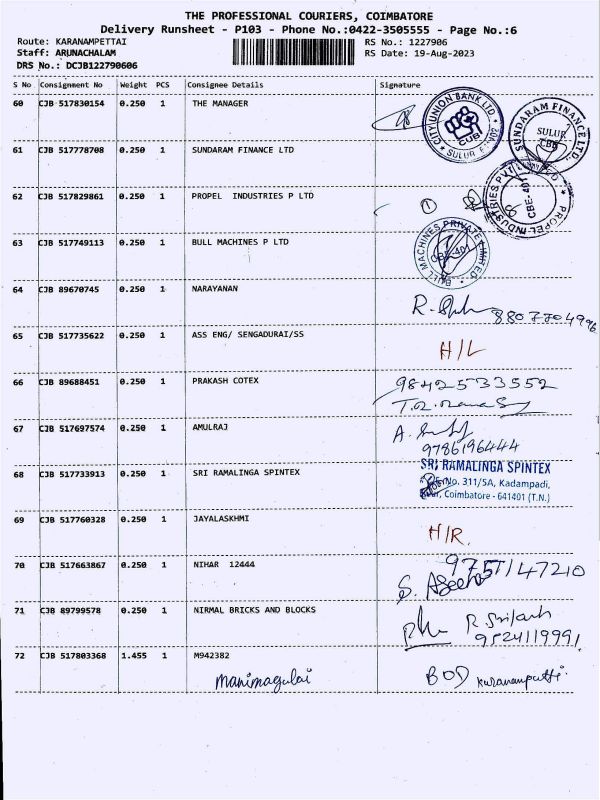 THE PROFESSIONAL COURIERS, COIMBATORE
Delivery Runsheet - P103 - Phone No.:0422-3505555 - Page No.:6
Route: KARANAMPETTAI RS No.: 1227906
Staff: ARUNACHALAM RS Date: 19-Aug-2023
DRS No.: DCJB122790606
S No Consignment No Weight PCS Consignee Details Signature
60 CJB 517830154 0.250 1 THE MANAGER
CITY UNION BANK LTD.
CUB
SULUR
61 CJB 517778708 0.250 1 SUNDARAM FINANCE LTD
SUNDARAM FINANCE LTD.
SULUR
CBE
62 CJB 517829861 0.250 1 PROPEL INDUSTRIES P LTD
1
PROPEL INDUSTRIES PVT
CBE-401
63 CJB 517749113 0.250 1 BULL MACHINES P LTD
BULL MACHINES PRIVATE LIMITED
CBE-401
64 CJB 89670745 0.250 1 NARAYANAN
8807704996
65 CJB 517735622 0.250 1 ASS ENG/ SENGADURAI/SS
H/L
66 CJB 89688451 0.250 1 PRAKASH COTEX
9842533552
67 CJB 517697574 0.250 1 AMULRAJ
9786196444
68 CJB 517733913 0.250 1 SRI RAMALINGA SPINTEX
SRI RAMALINGA SPINTEX
No. 311/5A, Kadampadi,
Coimbatore - 641401 (T.N.)
69 CJB 517760328 0.250 1 JAYALASKHMI
H/R.
70 CJB 517663867 0.250 1 NIHAR 12444
9751147210
71 CJB 89799578 0.250 1 NIRMAL BRICKS AND BLOCKS
9524119991
72 CJB 517803368 1.455 1 M942382
Manimagulai BOD